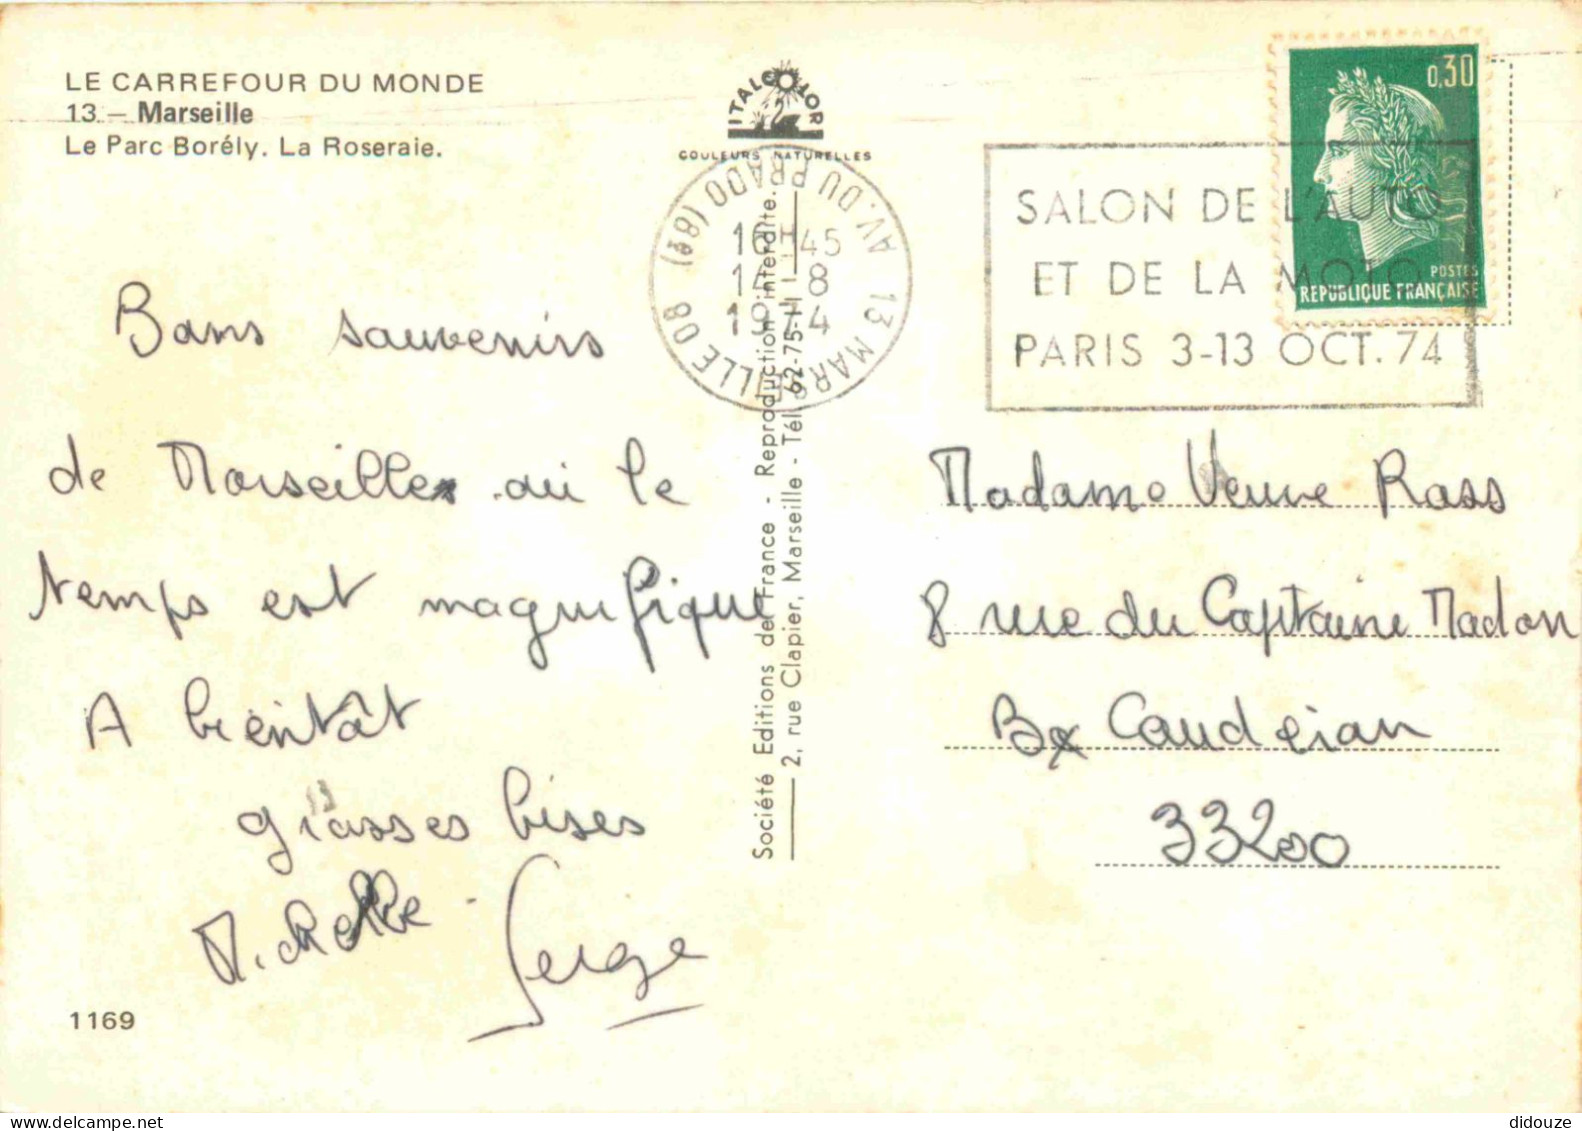 LE CARREFOUR DU MONDE
13 – Marseille
Le Parc Borély. La Roseraie.
ITALCOLOR
COULEURS NATURELLES
0,30
POSTES
REPUBLIQUE FRANÇAISE
13 MARSEILLE 08 AV. DU PRADO (8e)
16H45
14-8
1974
SALON DE L'AUTO
ET DE LA MOTO
PARIS 3-13 OCT. 74
Bons souvenirs
de Marseille où le
temps est magnifique
A bientôt
grosses bises
Michelle. Serge
1169
Société Editions de France - Reproduction interdite.
2, rue Clapier, Marseille - Tél. 62-75-11
Madame Veuve Ross
8 rue du Capitaine Madon
Bx Caudéran
33200
didouze